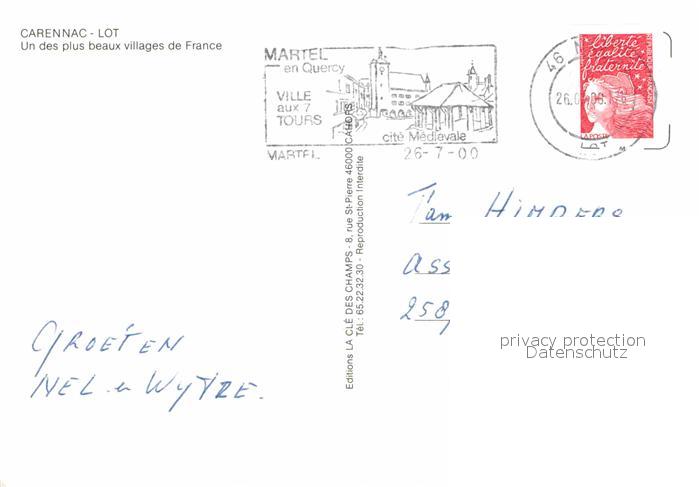 CARENNAC - LOT
Un des plus beaux villages de France
MARTEL
en Quercy
VILLE
aux 7
TOURS
cité Médievale
MARTEL
26-7-00
46
LOT
liberté
égalité
fraternité
LA POSTE
Editions LA CLÉ DES CHAMPS - 8, rue St-Pierre 46000 CAHORS
Tél.: 65.22.32.30 - Reproduction Interdite
Ass
258
GROETEN
NEL en WYTZE.
privacy protection
Datenschutz